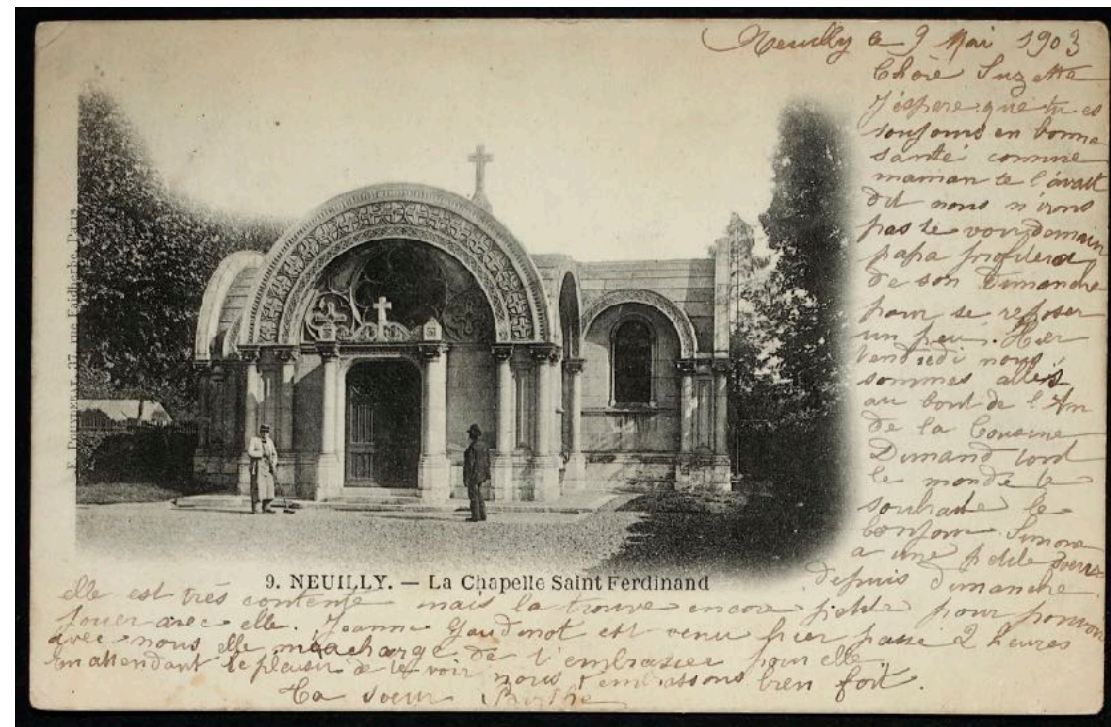 Neuilly le 9 Mai 1903
Chère Suzette
J'espere que tu es
toujours en bonne
santé comme
maman te l'avait
dit nous n'irons
pas te voir demain
papa profitera
de son Dimanche
pour se reposer
un peu. Hier
Vendredi nous
sommes allés
au bout de l'An
de la Cousine
Dumand tout
le monde te
souhaite le
bonjour Simone
a une petite soeur
depuis dimanche
E. POUYDEBAT, 37, rue Faidherbe, Paris
9. NEUILLY. — La Chapelle Saint Ferdinand
elle est très contente mais la trouve encore petite pour pouvoir
jouer avec elle. Jeanne Gaudinot est venu hier passé 2 heures
avec nous elle m'a charge de t'embrasser pour elle.
En attendant le plaisir de te voir nous t'embrassons bien fort.
Ta soeur Berthe